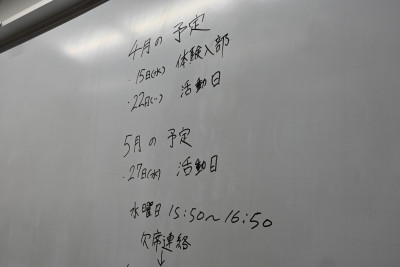 4月の予定
・15日(水) 体験入部
・22日(〃) 活動日
5月の予定
・27日(水) 活動日
水曜日 15:50〜16:50
欠席連絡
↓